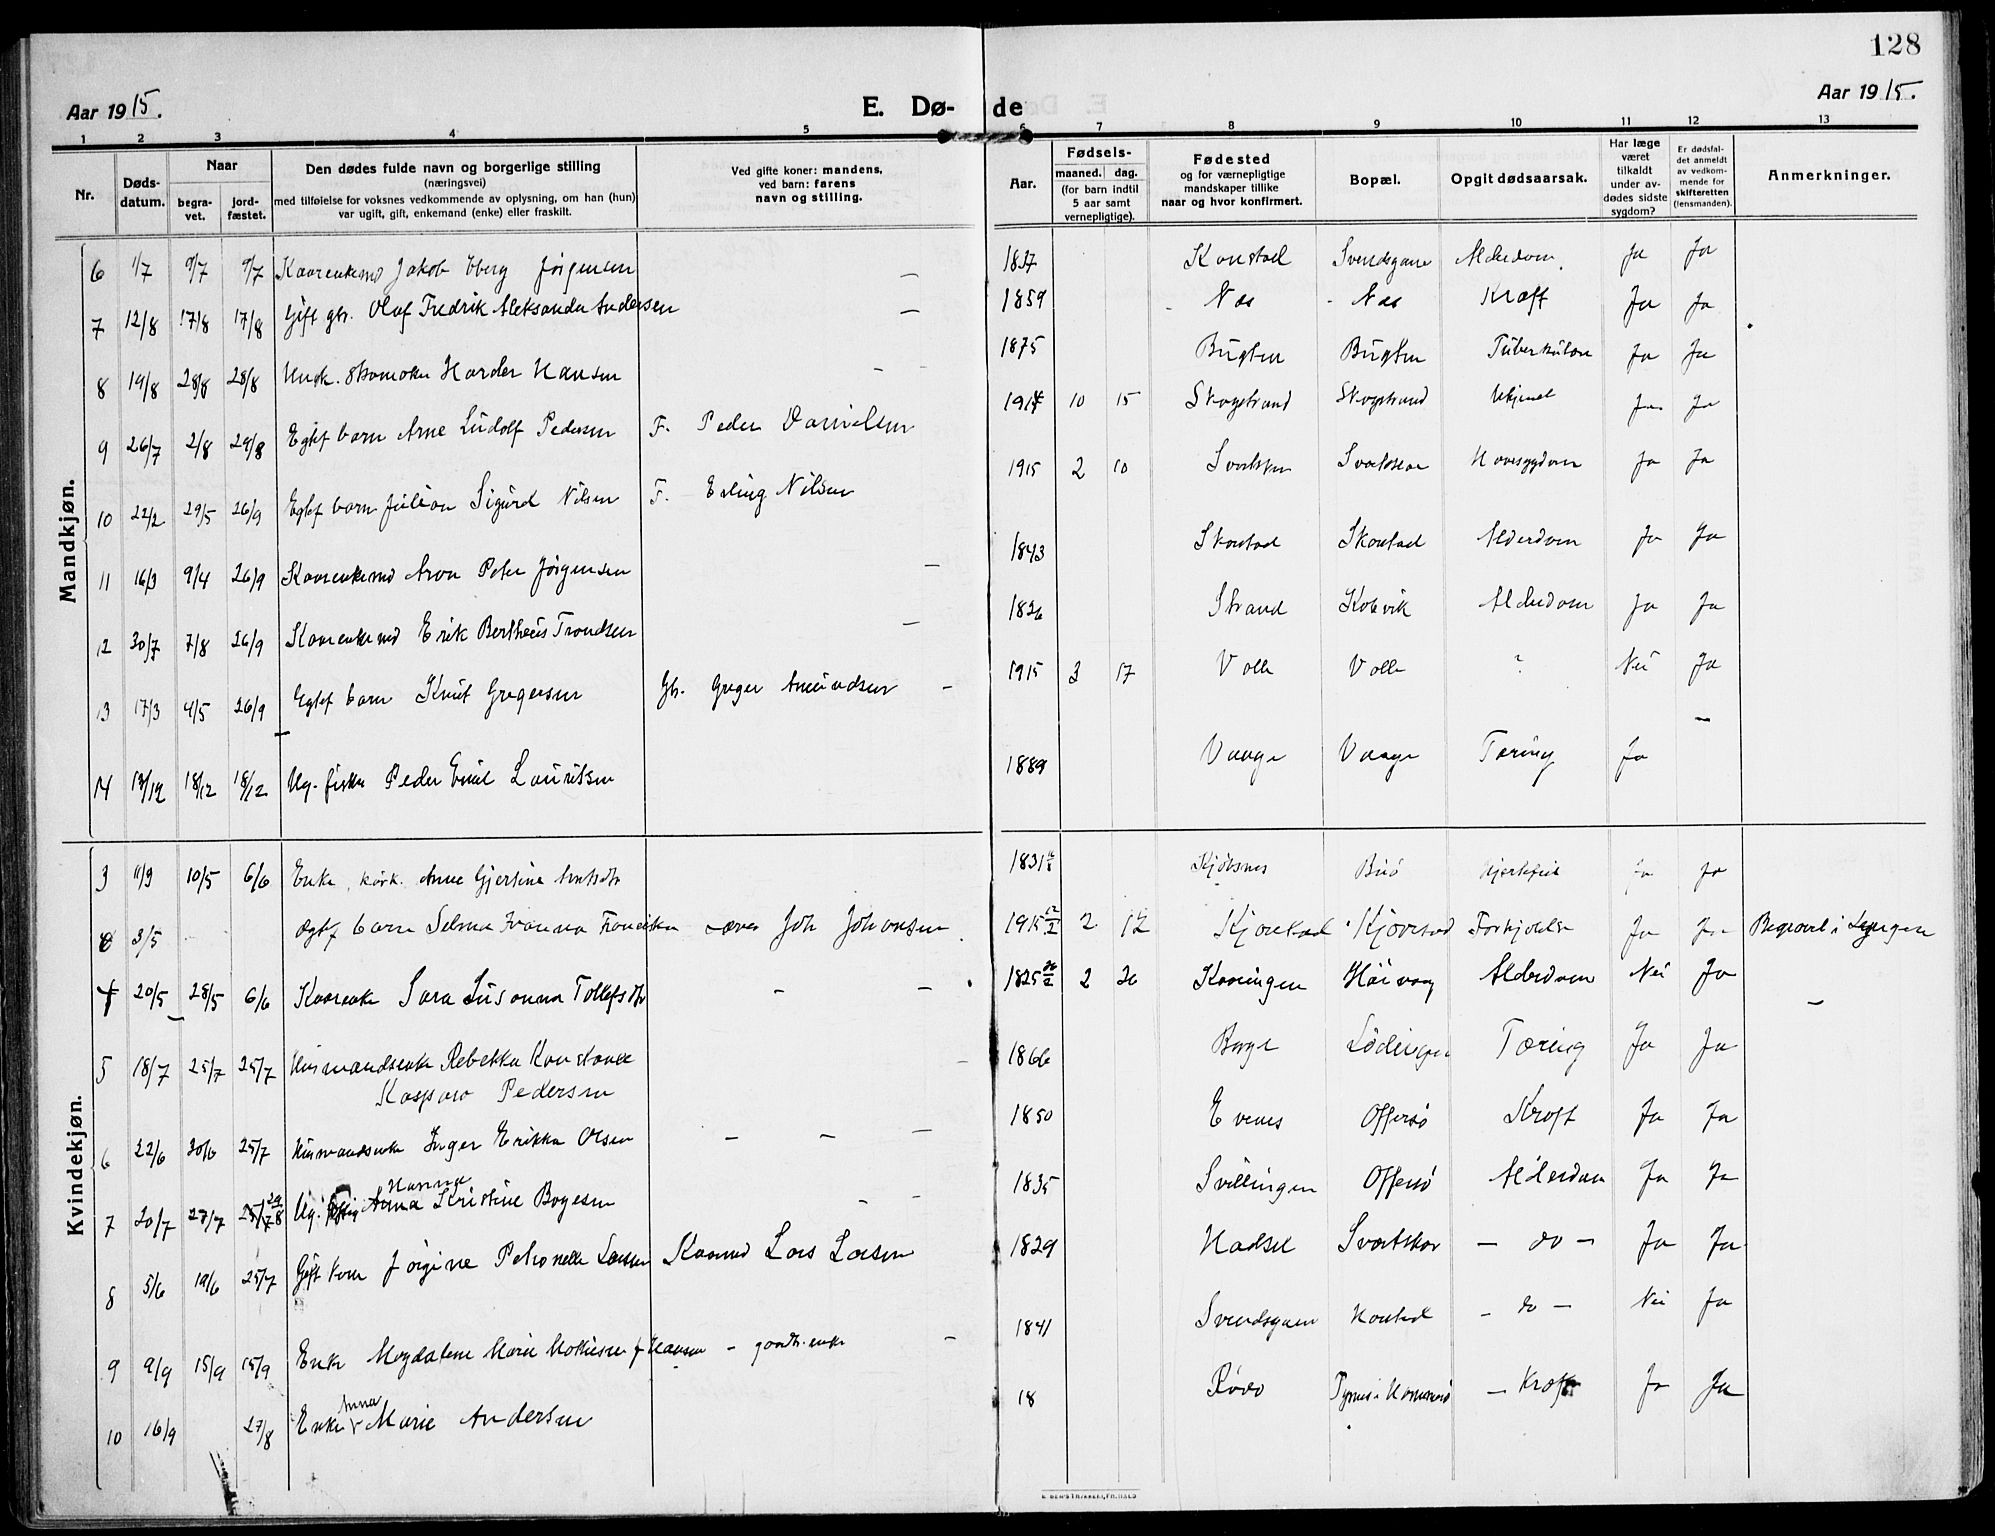 128
Aar 1915.
E. Dø-
de
Aar 1915.
1 2 3 4 5 6 7 8 9 10 11 12 13
Nr.
Døds-
datum.
Naar
begra-
vet.
jord-
fæstet.
Den dødes fulde navn og borgerlige stilling
(næringsvei)
med tilføielse for voksnes vedkommende av oplysning, om han (hun)
var ugift, gift, enkemand (enke) eller fraskilt.
Ved gifte koner: mandens,
ved barn: farens
navn og stilling.
Aar.
Fødsels-
maaned. dag.
(for barn indtil
5 aar samt
vernepligtige).
Fødested
og for værnepligtige
mandskaper tillike
naar og hvor konfirmert.
Bopæl.
Opgit dødsaarsak.
Har læge
været
tilkaldt
under av-
dødes sidste
sygdom?
Er dødsfal-
det anmeldt
av vedkom-
mende for
skifteretten
(lensmanden).
Anmerkninger.
Mandkjøn.
6 1/7 9/7 9/7 Kaarenkemd Jakob Eberg Jørgensen — 1837 Konstad Svendsgam Alderdom Ja Ja
7 12/8 17/8 17/8 Gift gbr. Olaf Fredrik Aleksander Andersen — 1859 Næs Næs Kræft Ja Ja
8 19/8 28/8 28/8 Harder Hansen — 1875 Bugten Bugten Tuberkulose Ja Ja
9 26/7 2/8 29/8 Egtef barn Arne Ludolf Pedersen F. Peder Danielsen 1914 10 15 Skogstrand Skogstrand Ukjendt Ja Ja
10 22/2 29/5 26/9 Egtef barn Julian Sigurd Nilsen F. Erling Nilsen 1915 2 10 Svartskar Svartskar Ja Ja
11 16/3 9/4 26/9 Kaarenkemd Aron Peter Jørgensen — 1843 Skonstad Skonstad Alderdom Ja Ja
12 30/7 7/8 26/9 Kaarenkemd Erik Bertheus Trondsen — 1826 Strand Kobvik Alderdom Ja Ja
13 17/3 4/5 26/9 Egtef barn Knut Gregersen Gb. Greger Amundsen — 1915 3 17 Volle Volle ? Nei Ja
14 13/12 18/12 18/12 Ug. fisker Peder Emil Lauritsen 1889 Vaage Vaage Tæring Ja —
Kvindekjøn.
3 11/3 10/5 6/6 Enke, kårk. Anne Gjertine 1831 Kjøbsnes Ja Ja
3/5 Ægtef barn Selma Ivanna Joh Johansen 1915 12/2 2 12 Kjorstad Kjorstad Forkjølelse Ja Ja Begravet i Løgingen
4 20/5 28/5 6/6 Kaarenke Sara Susanna Tollefsdtr — — 1825 26/2 2 26 Kaningen Alderdom Nei Ja —
5 18/7 25/7 25/7 Husmandsenke Rebekka Konstanse
Kaspara Pedersen — 1866 Borge Lødingen Tæring Ja Ja
6 22/6 30/6 25/7 Husmandsenke Inger Erikka Olsen — — — 1850 Evenes Offersø Kræft Ja Ja
Hanna
7 20/7 27/7 29/8 Ug. Anna Kristine Bogesen — — 1835 Svellingen Offersø Alderdom Ja Ja
8 5/6 19/6 25/7 Gift kone Jørgine Petronelle Larsen Kaarmd Lars Larsen 1829 Hadsel Svartskar — do — Ja Ja
9 9/9 15/9 15/9 Enke Magdalene Marie Mathisen f Hansen — gaardb. enke — 1841 Svendsgam Konstad — do — Nei Ja
Anna
10 16/9 27/8 Enke Marie Andersen 18 — Kræft Ja Ja